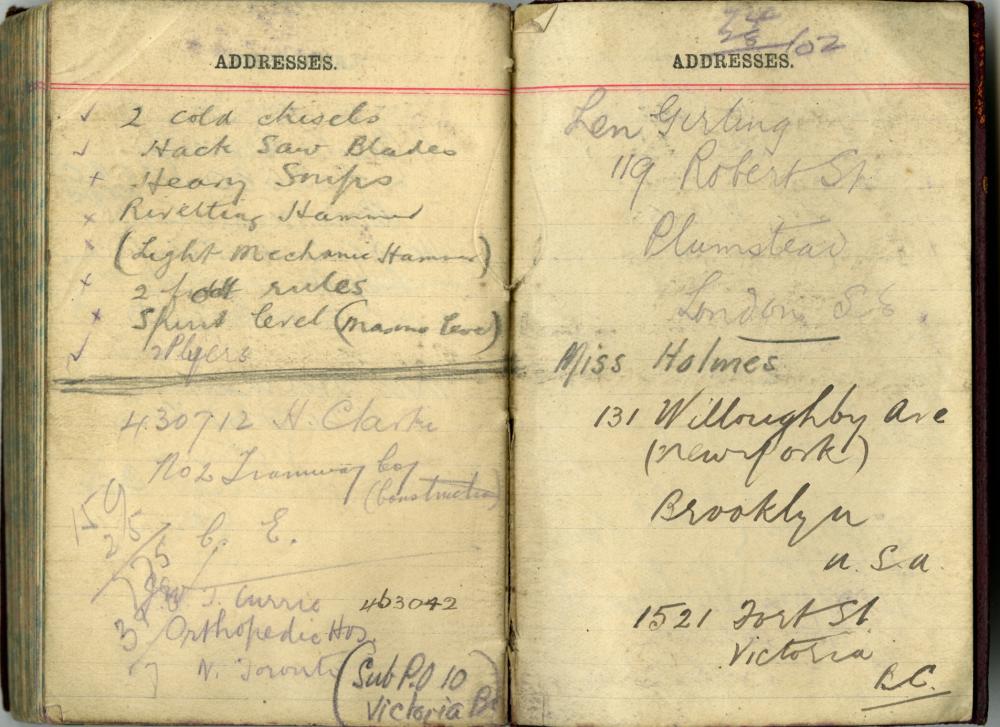 ADDRESSES.
✓ 2 cold chisels
✓ Hack Saw Blades
+ Heavy Snips
x Rivetting Hammer
x (Light Mechanic Hammer)
x 2 foot rules
x Spirit level (Masons level)
✓ 2 Plyers
430712 H. Clarke
No 2 Tramway Coy
(Construction)
C. E.
J. Currie 463042
Orthopedic Hos.
N. Toronto
(Sub P.O 10
Victoria BC
ADDRESSES.
/02
Len Girling
119 Robert St
Plumstead
London S.E
Miss Holmes
131 Willoughby Ave
(New York)
Brooklyn
U.S.A.
1521 Fort St
Victoria
B.C.